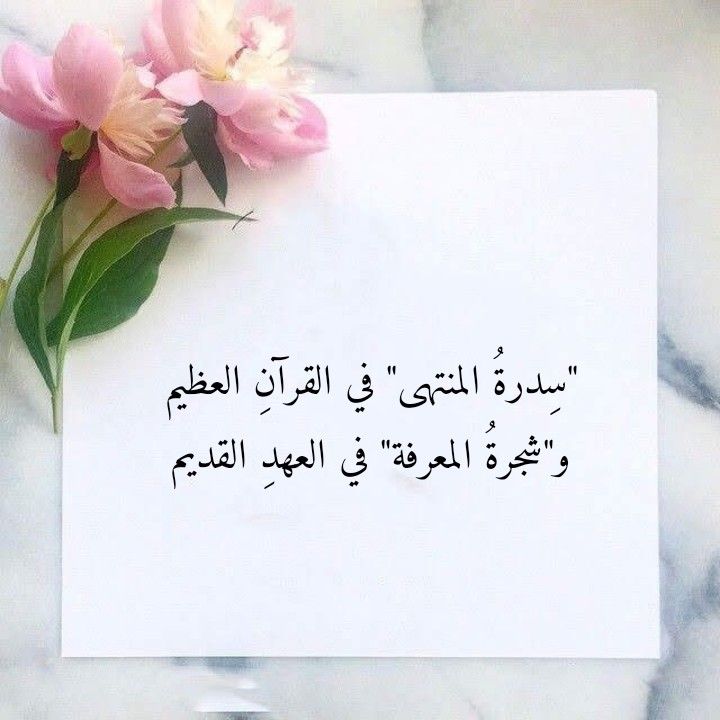 "سِدرةُ المنتهى" في القرآنِ العظيم
و"شجرةُ المعرفة" في العهدِ القديم